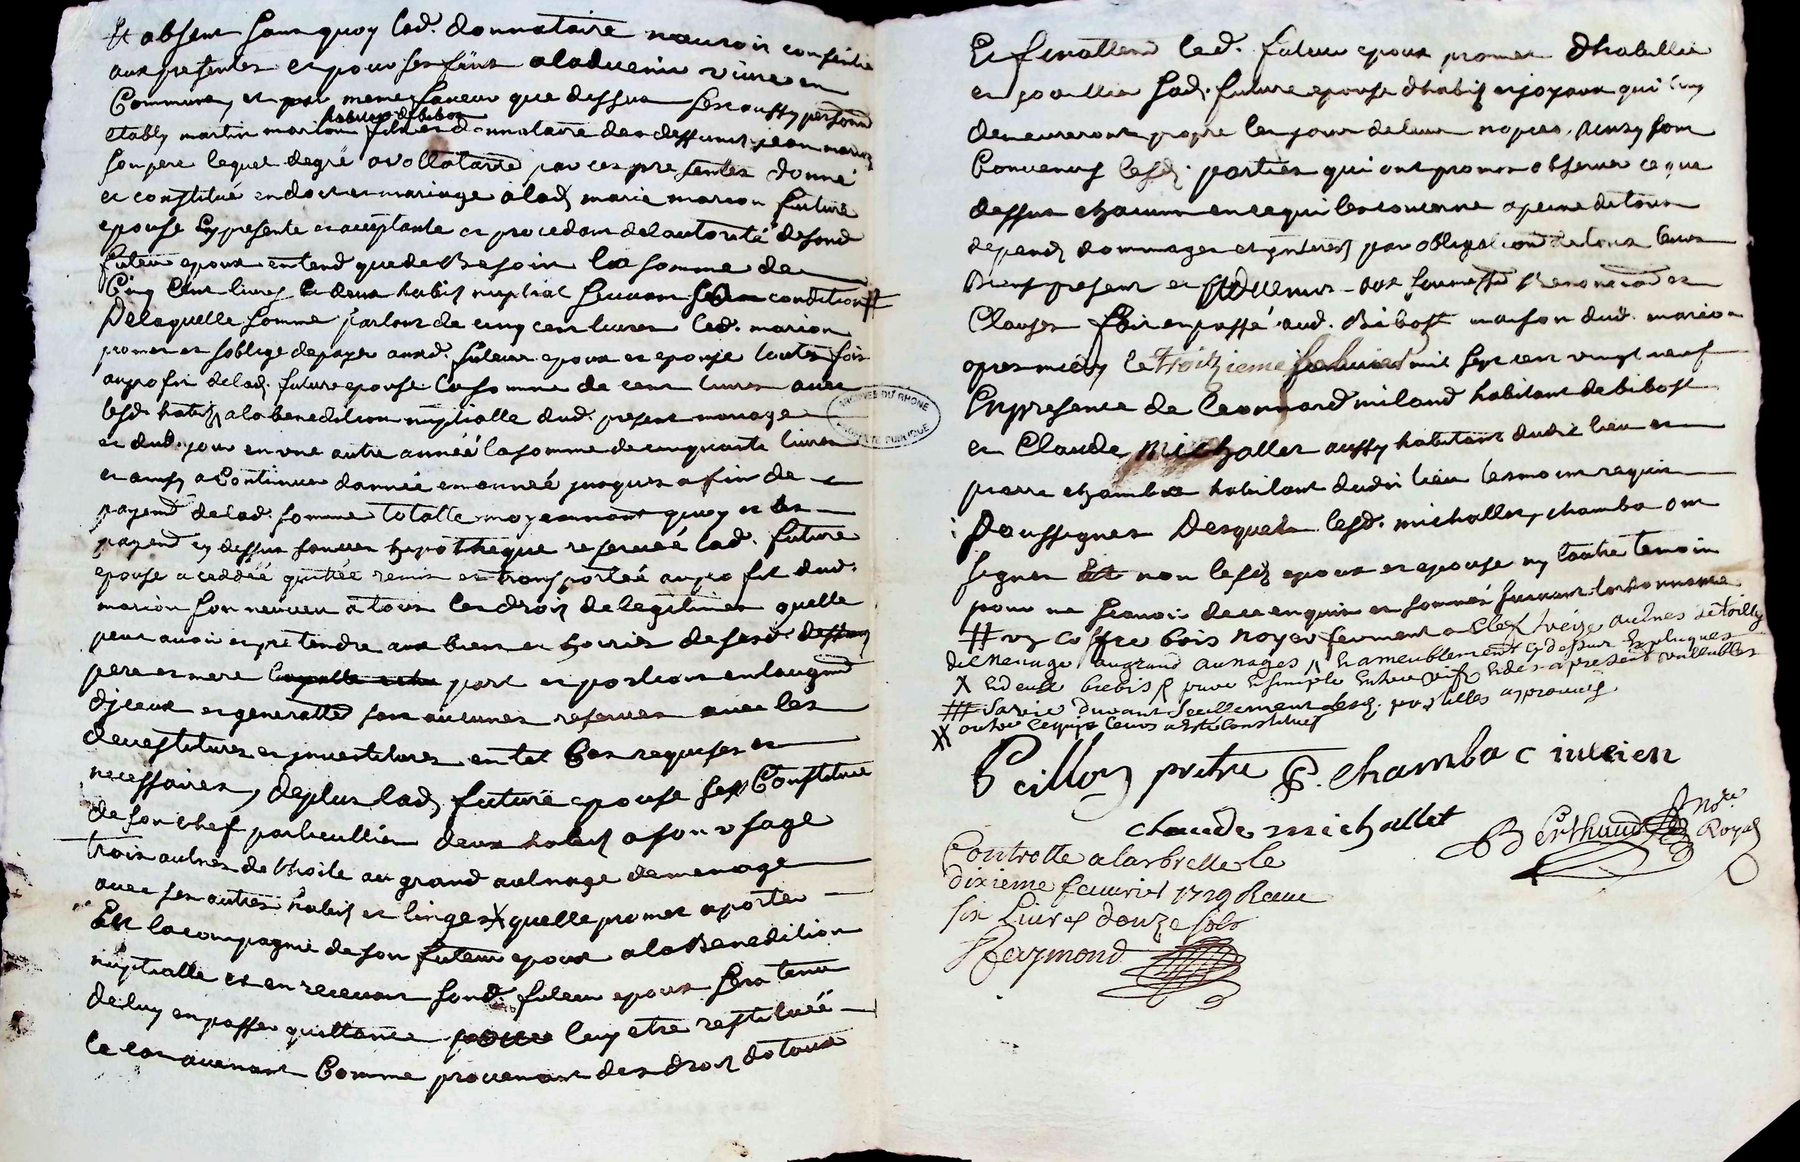 et absent sans quoy led. donnataire n'auroit consentie
aux presentes et pour ses fins a ladvenir vivre en
Commun, et par meme faveur que dessus s'est aussy personn
etably martin marion habitant de bibost fils et donnataire de deffunt jean marion
son pere lequel de gré a vollotairt par ces presentes donné
et constitué en dot et mariage à lad. marie marion future
epouse Cy presente et acceptante et procedant de l'autorité de sond
futeur epoux entend que de Besoin la somme de
Cinq Cent livres et deux habits nuptial suivant condition #
De laquelle somme parlant de cinq cent livres led. marion
promet et soblige de payer auxd. futeur epoux et epouse toutes fois
au profit de lad. future epouse la somme de cent livres avec
lesd. habits a la benediction nuptialle dud. present mariage
et dud. jour en une autre année la somme de cinquante livres
et ainsy a Continuer d'année en année jusques a fin de
payemt de lad. somme totalle moyennant quoy et les
payemt cy dessus sauves hypotheque reservée lad. future
epouse a ceddéé quittée remis et transportéé au profit dud.
marion son neuveu a tous les droits de legitimes quelle
peut avoir et pretendre aux biens et hoiries de sesd.
pere et mere part et portion en laugmt
d'jceux et generallt sans aucunes reserves avec les
devestitures et jnvestitures en tel Cas requises et
necessaires, de plus lad. future epouse sest Constituée
de son chef particullier deux habits a son usage
trois aulnes de thoile au grand aulnage de menage
avec ses autres habits et linges X quelle promet aporter
En la compagnie de son futeur epoux a la Benediction
nuptialle et en recevant sond. futeur epoux sera tenu
de luy en passer quittance pour luy etre restituéé
le cas avenant Comme provenant des droits dotaux
Et finallemt led. futeur epoux promet d'habiller
et joaillier sad. future epouse d'habits et joyaux qui luy
demeureront propre le jour de leur nopces. ainsy sont
Convenus lesd. parties qui ont promis observer ce que
dessus chacun en ce qui les concerne a peine de tous
depends dommages et jnterets par obligation de tous leurs
Biens present et advenir aux soumission Renonciaon et
Clauses fait et passé aud. Bibost maison dud. marion
apres midy le troizieme febvrier mil sept cent vingt neuf
En presence de leonnard miland habitant de bibost
et Claude Michallet aussy habitant dudit lieu et
pierre chamba habitant dudit lieu tesmoins requis
Soussignes Desquels lesd. michallet, chamba ont
signer non lesd. epoux et epouse ny l'autre temoin
pour ne scavoir de ce enquis et sommés suivant l'ordonnance
# un coffre bois noyer ferment a clef treize aulnes de toille
de menage au grand aunages, l'ameublement cy dessus Expliques
X et deux brebis
# sa vie durant seullement lesd. postilles approuvés
XX outre
Peillon pretre P. chamba C iullien
claude michallet
Berthaud Nore Royal
Controlle a larbresle le
dixieme feuvrier 1729 Receu
six Livres douze sols
Raymond
ARCHIVES DU RHONE